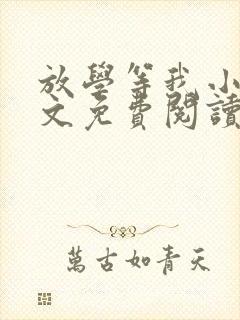 放學等我 小
文免費閱讀
萬古如青天